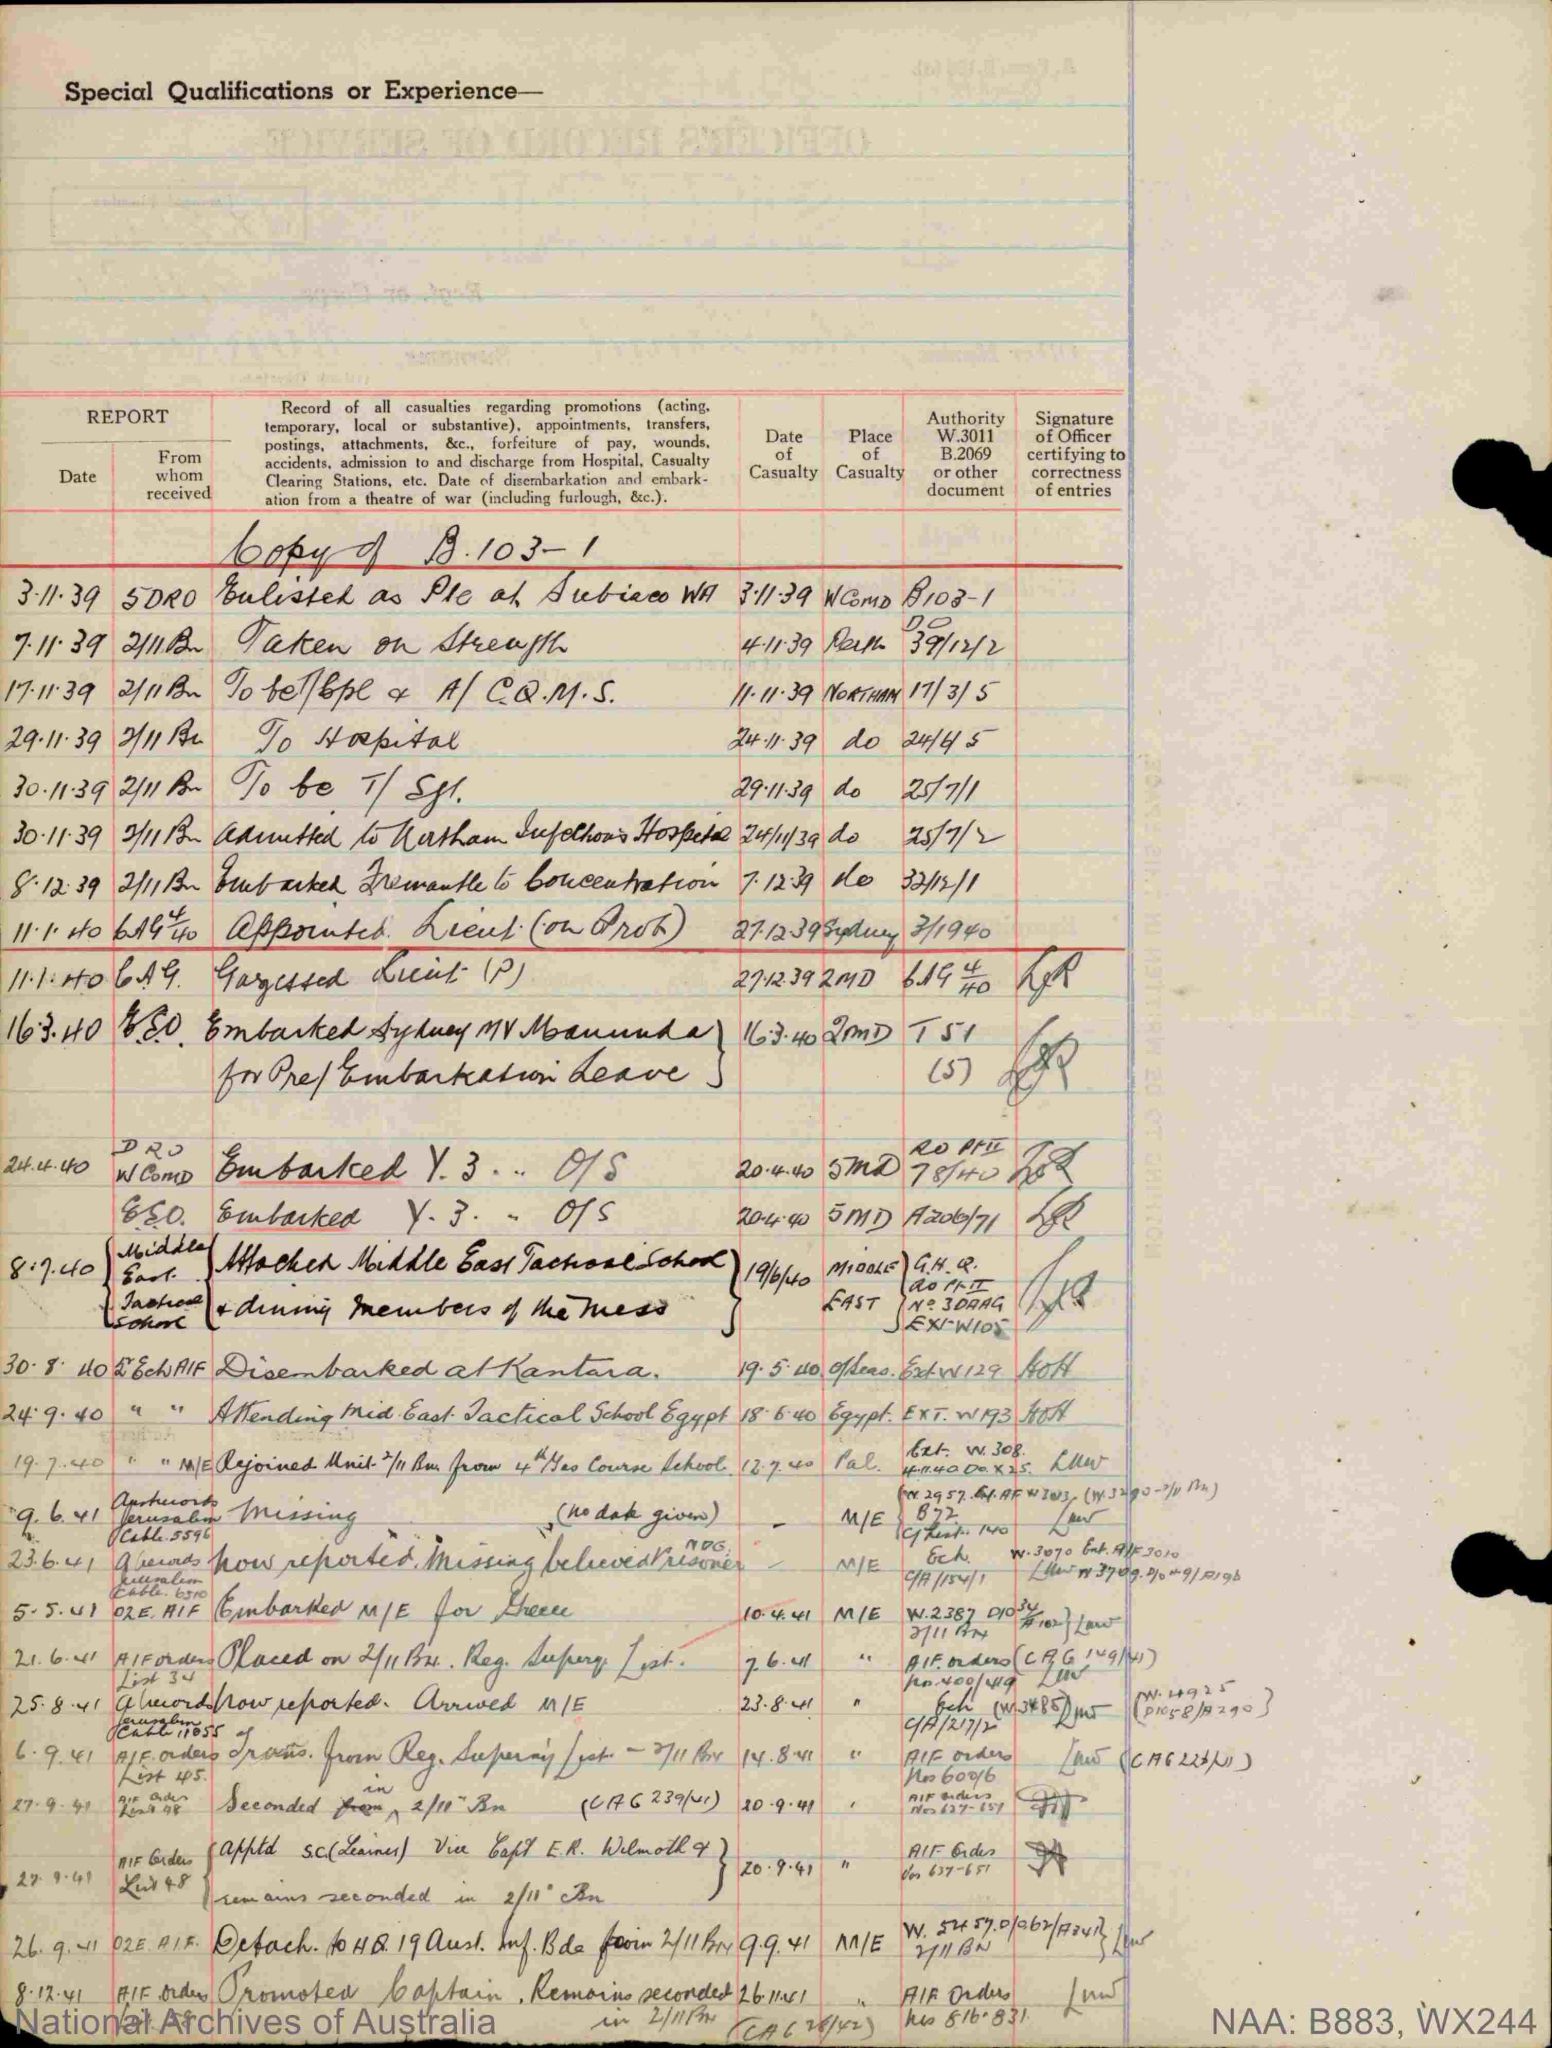 Special Qualifications or Experience—
REPORT
Date
From
whom
received
Record of all casualties regarding promotions (acting,
temporary, local or substantive), appointments, transfers,
postings, attachments, &c., forfeiture of pay, wounds,
accidents, admission to and discharge from Hospital, Casualty
Clearing Stations, etc. Date of disembarkation and embark-
ation from a theatre of war (including furlough, &c.).
Date
of
Casualty
Place
of
Casualty
Authority
W.3011
B.2069
or other
document
Signature
of Officer
certifying to
correctness
of entries
Copy of B.103-1
3·11·39 5DRO Enlisted as Pte at Subiaco WA 3·11·39 W Comd B103-1
7·11·39 2/11 Bn Taken on Strength 4·11·39 Perth 39/12/2
17·11·39 2/11 Bn To be T/Cpl & A/ C.Q.M.S. 11·11·39 NORTHAM 17/3/5
29·11·39 2/11 Bn To Hospital 24·11·39 do 24/6/5
30·11·39 2/11 Bn To be T/ Sgt. 29·11·39 do 25/7/1
30·11·39 2/11 Bn Admitted to Northam Infectious Hospital 24/11/39 do 25/7/2
8·12·39 2/11 Bn Embarked Fremantle to Concentration 7·12·39 do 32/12/1
11·1·40 CAG 4/40 Appointed Lieut (on Prob) 27·12·39 Sydney 3/1940
11·1·40 C.A.G. Gazetted Lieut (P) 27·12·39 2MD CAG 4/40
16·3·40 E.S.O. Embarked Sydney MV Manunda 16·3·40 2MD T51
for Pre/Embarkation Leave (5)
24.4.40 DRO W Comd Embarked Y.3 .. O/S 20·4·40 5MD RO Pt II 78/40
E.S.O. Embarked Y.3. " O/S 20·4·40 5MD A206/71
8·7·40 Middle East Tactical School Attached Middle East Tactical School 19/6/40 MIDDLE EAST G.H.Q. RO Pt II
& dining members of the Mess No 3DAAG EXT W105
30·8·40 2 Ech AIF Disembarked at Kantara. 19·5·40 O/Seas. Ext W129 HOH
24·9·40 " " Attending Mid East Tactical School Egypt 18·6·40 Egypt. EXT. W193 HOH
19·7·40 " " M/E Rejoined Unit 2/11 Bn from 4th Gas Course School 12·7·40 Pal. Ext. W.308. 4.11.40 Do. X25. Law
9.6.41 Austrecords Jerusalem Cable 5596 Missing (no date given) – M/E 872 Law
23.6.41 Arecords Jerusalem Cable 6510 Now reported. Missing believed Prisoner NDG – M/E Ech. C/A/154/1 W.3070 Ext. AIF 3010
5·5·41 O2E. AIF Embarked M/E for Greece 10.4.41 M/E W.2387 2/11 Bn Law
21.6.41 AIF orders List 34 Placed on 2/11 Bn. Reg. Supery. List. 7.6.41 " AIF. orders (CAG 149/41) Nos 400/419 Law
25.8.41 Arecords Jerusalem Cable 11055 Now reported. Arrived M/E 23.8.41 " Ech (W.3485) C/A/217/2 Law (W.4925 D1058/A290)
6.9.41 AIF. orders List 45. Trans. from Reg. Supern'y List – 2/11 Bn 14.8.41 " AIF orders Nos 600/6 Law
27.9.41 AIF Orders List 48 Seconded in 2/11 Bn (CAG 239/41) 20·9·41 " AIF orders Nos 637-651
27.9.41 AIF Orders List 48 Apptd S.C. (Learner) Vice Capt E.R. Wilmoth & 20·9·41 " AIF Orders Nos 637-651
remains seconded in 2/11 Bn
26.9.41 O2E. A.I.F. Detach. to HQ. 19 Aust. Inf. Bde from 2/11 Bn 9.9.41 M/E W.5457.D/062/A341 2/11 BN Law
8·12·41 AIF orders Promoted Captain. Remains seconded 26.11.41 " AIF Orders Law
in 2/11 Bn (CAG 26/42) Nos 816-831
National Archives of Australia
NAA: B883, WX244